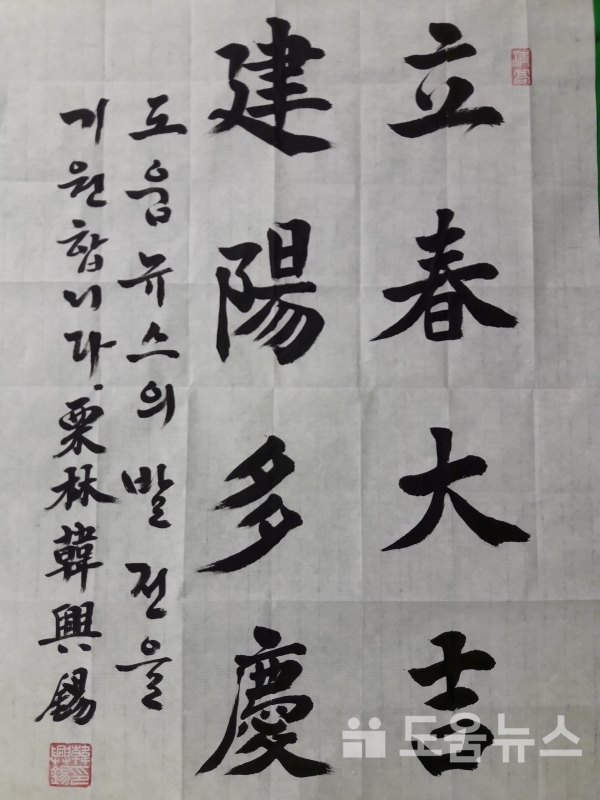 立春大吉
建陽多慶
도움뉴스의 발전을
기원합니다. 栗林 韓興錫
도움뉴스